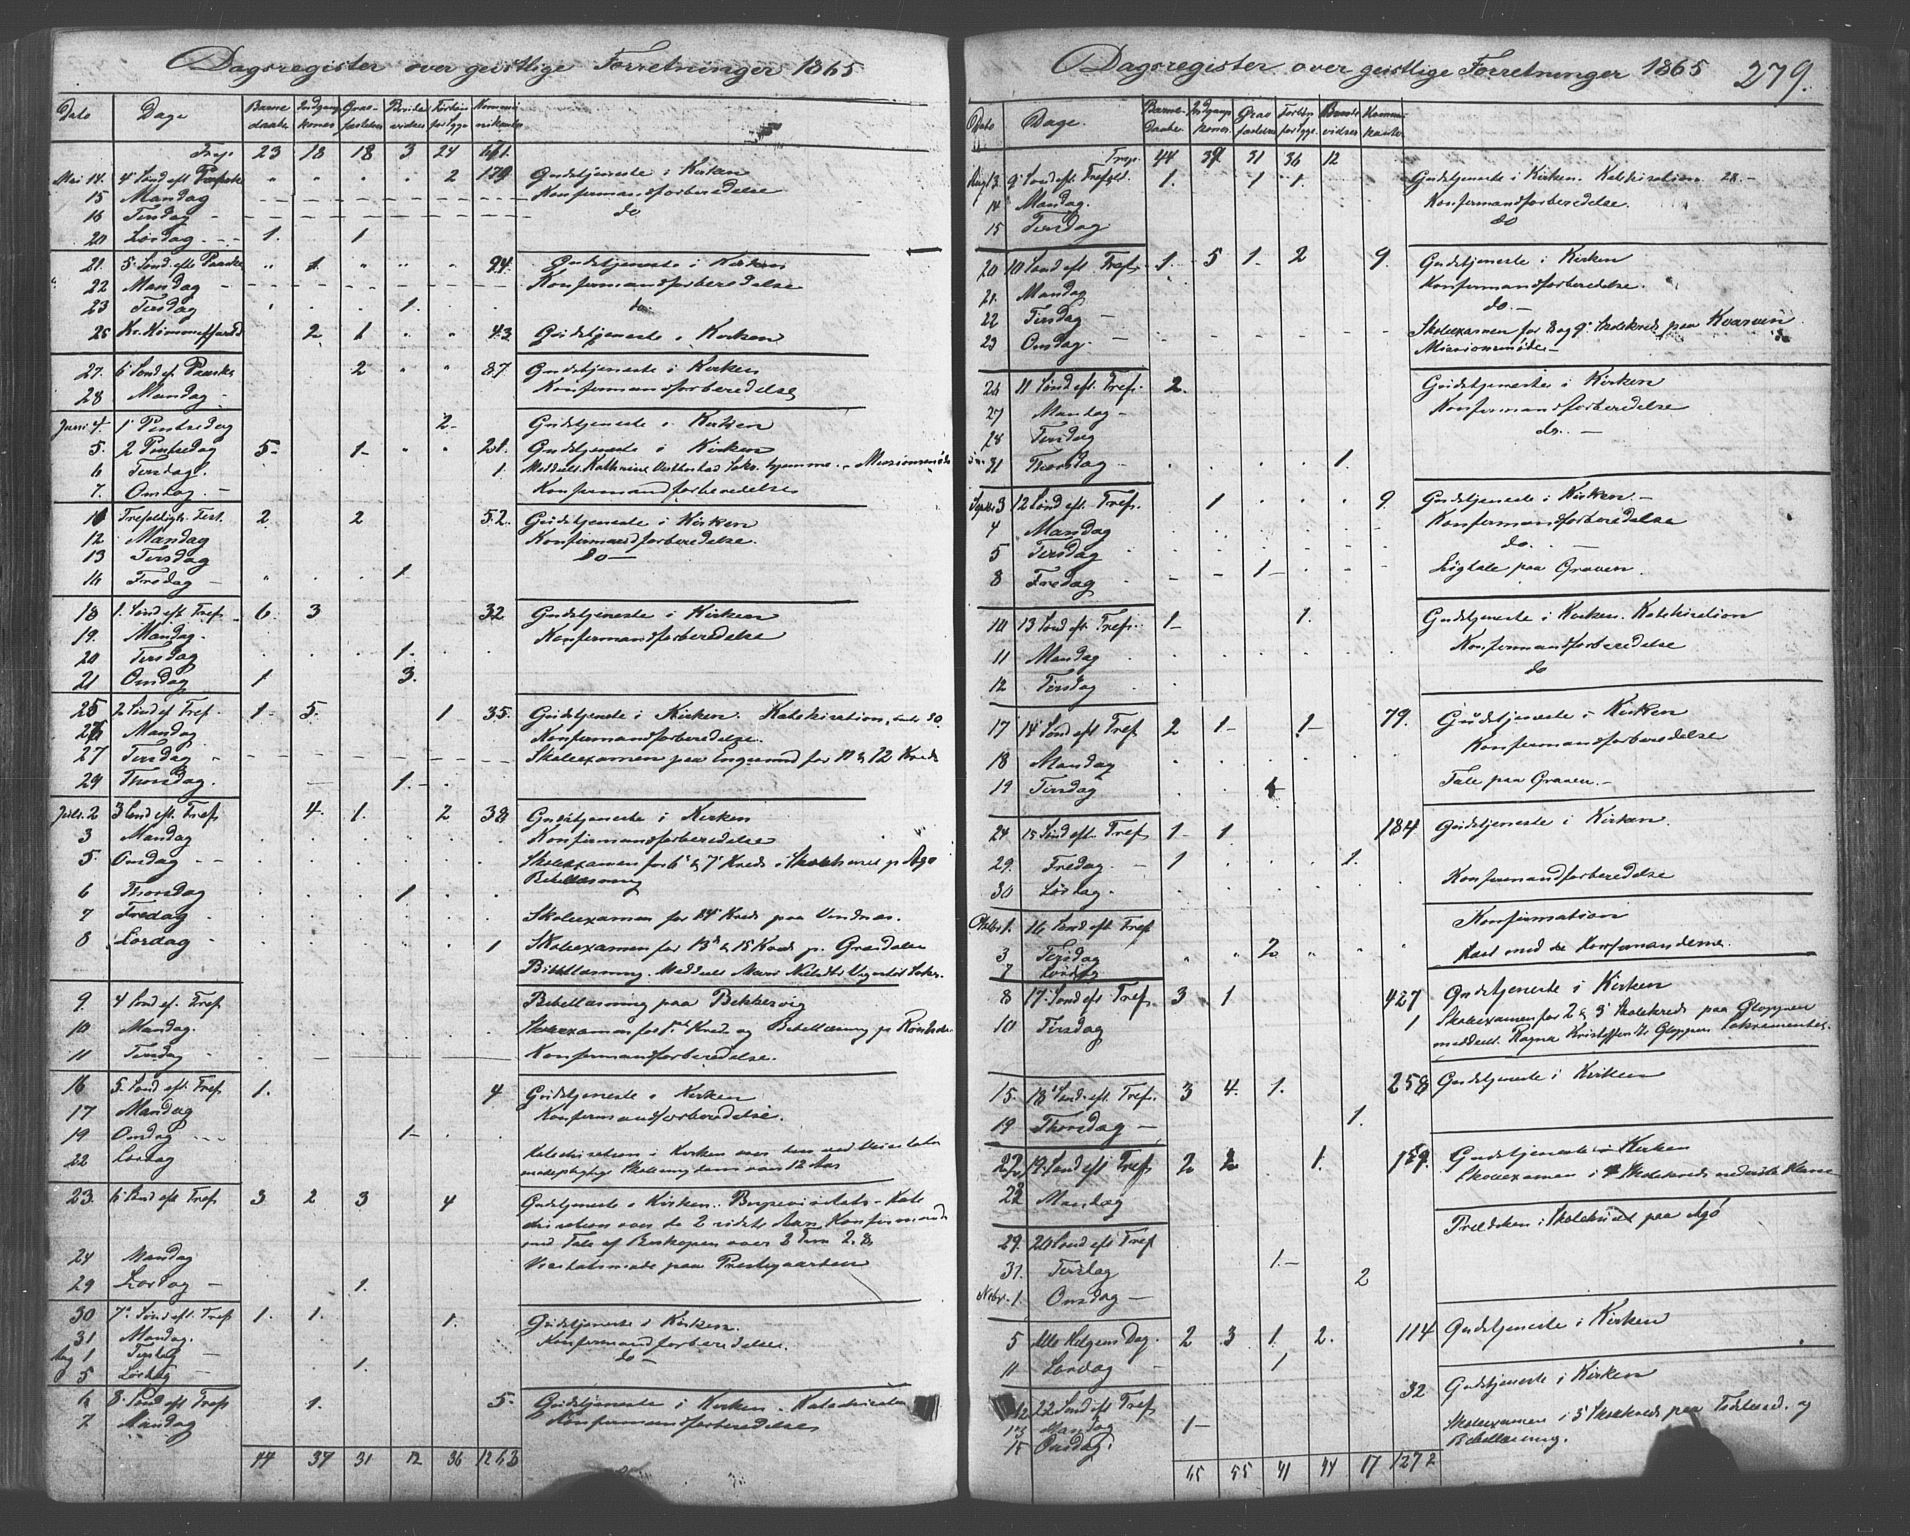 Dagsregister over geistlige Forretninger 1865
Dato Dage Barne daaber Indgangs koner Grav fæstelser Brude vielser Forbøn forlyste Kommu nikanter
Trsp. 23 18 18 3 24 641.
Mai 14. 4 Sønd eft Paaske " " " " 2 179 Gudstjeneste i Kirken
15 Mandag Konfirmandforberedelse
16 Tirsdag do
20 Lørdag 1. 1
21. 5. Sønd eft Paaske " 1 " " " 94. Gudstjeneste i Kirken
22 Mandag Konfirmandforberedelse
23 Tirsdag 1. do
25 Kr. Himmelfartsd 2 1 43 Gudstjeneste i Kirken
27. 6 Sønd ef. Paaske 2 87 Gudstjeneste i Kirken
28 Mandag Konfirmandforberedelse
Juni 4. 1 Pintsedag 2 Gudstjeneste i Kirken
5. 2 Pintsedag 5 1 21. Gudstjeneste i Kirken
6 Tirsdag 1. Meddeelt Kathrine Sakr. hjemme. Missionsmøde
7. Onsdag Konfirmandforberedelse
11 Trefoldigh. Fest. 2 2 52. Gudstjeneste i Kirken
12 Mandag Konfirmandforberedelse.
13 Tirsdag do
16 Fredag 1
18 1. Sønd eft. Tref. 6. 3 32 Gudstjeneste i Kirken
19. Mandag. Konfirmandforberedelse
20 Tirsdag 1.
21 Onsdag 1 3.
25 2 Sønd ef Tref. 1 5. 1 35. Gudstjeneste i Kirken. Katekisation,
26 Mandag Konfirmandforberedelse.
27 Tirsdag Skoleexamen paa for 11 & 12 Kreds
29 Thorsdag. 1.
Juli 2 3 Sønd eft. Tref 4. 1. 2 38 Gudstjeneste i Kirken
3 Mandag Konfirmandforberedelse
5. Onsdag Skoleexamen for 6 & 7 Kreds i Skolehuset p. Agø
Bibellæsning
6 Thorsdag 1
7 Fredag Skoleexamen for 14 Kreds paa Vindnæs.
8 Lørdag 1 Skoleexamen for 13 & 15 Kreds p. Grasdalen
Bibellæsning. Meddeelt Sakr.
9 4 Sønd ef. Tref Bibellæsning paa Bekkesvig
10 Mandag. Skoleexamen for 5 Kreds og Bibellæsning p.
11 Tirsdag Konfirmandforberedelse.
16 5. Sønd eft. Tref 1. 4 Gudstjeneste i Kirken
17 Mandag Konfirmandforberedelse.
19 Onsdag 1
22 Lørdag Katechisation i Kirken over den ved Visitatsen
mødepligtige Skoleungdom over 12 Aar
23. 6 Sønd eft Tref 3 2 3 4 Gudstjeneste i Kirken. Bispevisitats. Kate
chisation over de 2 sidste Aars Konfirmander
med Tale af Biskopen over 2 Tim 2. 8
24 Mandag Visitatsmøde paa Prestegaarden
29 Lørdag 1.
30 7. Sønd eft. Tref 1. 1. 1. Gudstjeneste i Kirken.
31 Mandag. Konfirmandforberedelse.
Aug 1 Tirsdag do
5 Lørdag 1.
6 8. Sønd eft Tref 1. 5. Gudstjeneste i Kirken. Katechisation
7 Mandag Konfirmandforberedelse
44 37 31 12 36 1263
Dagsregister over geistlige Forretninger 1865 279.
Dato Dage. Barne Daaber. Indgangs koner. Grav fæstelser Forbøn forlyste. Brude vielser Kommu kanter
Trsp. 44 37 31 36 12
Aug 13. 9 Sønd eft. Trefold. 1. 1 1. Gudstjeneste i Kirken. Katekisation
14 Mandag. Konfirmandforberedelse.
15 Tirsdag do
20 10 Sønd eft Tref. 1. 5 1. 2 9. Gudstjeneste i Kirken
21. Mandag Konfirmandforberedelse.
22 Tirsdag do
23 Onsdag. Skoleexamen for 8 og 9 Skolekreds paa Kvarven
Missionsmøde
26 11 Sønd eft. Tref. 2. Gudstjeneste i Kirken
27 Mandag Konfirmandforberedelse
28 Tirsdag do.
31 Thorsdag 1.
Septbr 3 12 Sønd eft. Tref. 1 9. Gudstjeneste i Kirken.
4 Mandag Konfirmandforberedelse
5 Tirsdag do.
8 Fredag 1 Ligtale paa Graven.
10 13 Sønd eft. Tref. 1 1. Gudstjeneste i Kirken. Katekisation
11 Mandag Konfirmandforberedelse
12 Tirsdag do
17 14 Sønd eft Tref 2 1 1 79. Gudstjeneste i Kirken
18 Mandag Konfirmandforberedelse
19 Tirsdag 1 Tale paa Graven.
24. 15 Sønd eft Tref 1 1 184 Gudstjeneste i Kirken.
29. Fredag 1 1.
30 Lørdag. Konfirmandforberedelse
Oktbr 1. 16 Sønd eft Tref Konfirmation
3 Tirsdag 2 med de Konfirmanderne.
7 Lørdag
8 17. Sønd eft Tref. 3 1 427 Gudstjeneste i Kirken
10 Tirsdag 1 Skoleexamen for 2 & 3 Skolekreds paa Gloppen
meddeelt Ragna Gloppen Sakramentet.
15. 18 Sønd eft Tref. 3 4. 1. 258 Gudstjeneste i Kirken
19 Thorsdag 1.
22 19. Sønd eft Tref 2 2 1. 159. Gudstjeneste i Kirken
23 Mandag Skoleexamen i 4 Skolekreds nederste Klasse
29. 20 Sønd eft Tref Prædiken i Skolehuset paa Agø
31. Tirsdag 1.
Nvbr. 1 Onsdag 2
5 Alle Helgens Dag. 2 3 1 2. 114 Gudstjeneste i Kirken
11 Lørdag 1
12 22 Sønd eft Tref 32 Gudstjeneste i Kirken
13 Mandag 1 Skoleexamen i 5 Skolekreds paa og
15 Onsdag. Bibellæsning.
65 55 41 44 17 1272